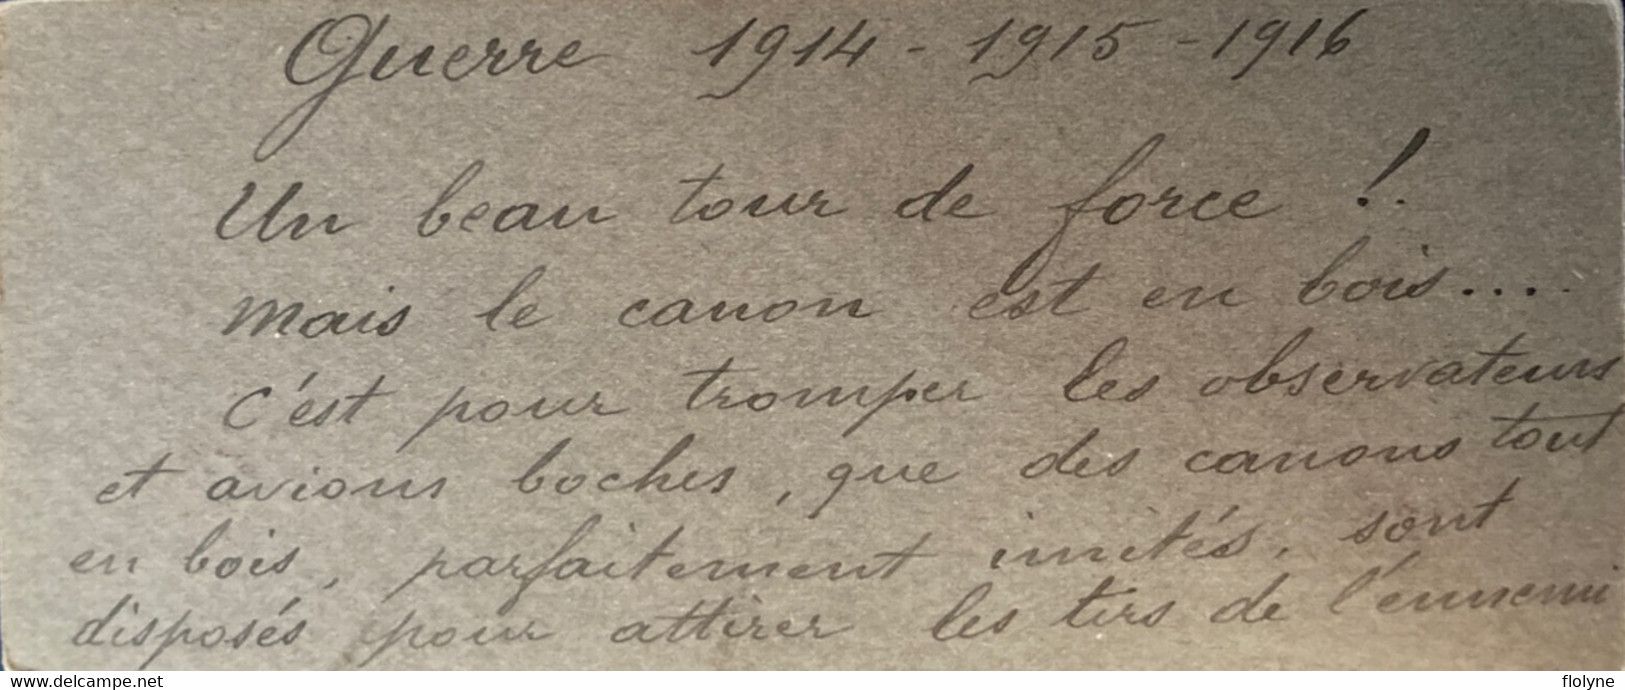 Guerre 1914 - 1915 - 1916
Un beau tour de force !.
mais le canon est en bois....
c'est pour tromper les observateurs
et avions boches, que des canons tout
en bois, parfaitement imités, sont
disposés pour attirer les tirs de l'ennemi
www.delcampe.net
flolyne